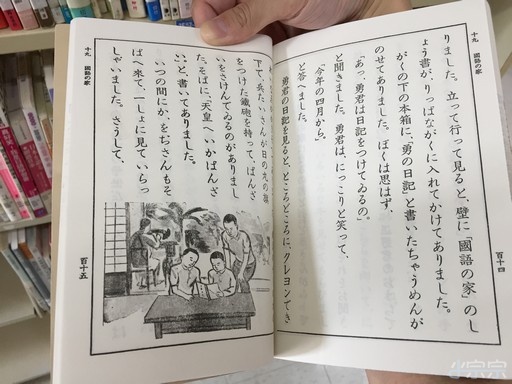 十九 國語の家
りました。立って行って見ると、壁に「國語の家」のし
ょう書が、りっぱながくに入れてかけてありました。
がくの下の本箱に、「勇の日記」と書いたちゃうめんが
のせてありました。ぼくは思はず、
「あっ、勇君は日記をつけてゐるの。」
と聞きました。勇君は、にっこりと笑って、
「今年の四月から。」
と答へました。
勇君の日記を見ると、ところどころに、クレヨンでき
百十四
十九 國語の家
下で、兵たいさんが日の丸の旗
をつけた鐵砲を持って、ばんざ
いをさけんでゐるのがありまし
た。そばに、「天皇へいかばんざ
い」と、書いてありました。
いつの間にか、をぢさんもそ
ばへ來て、一しょに見ていらっ
しゃいました。さうして、
百十五